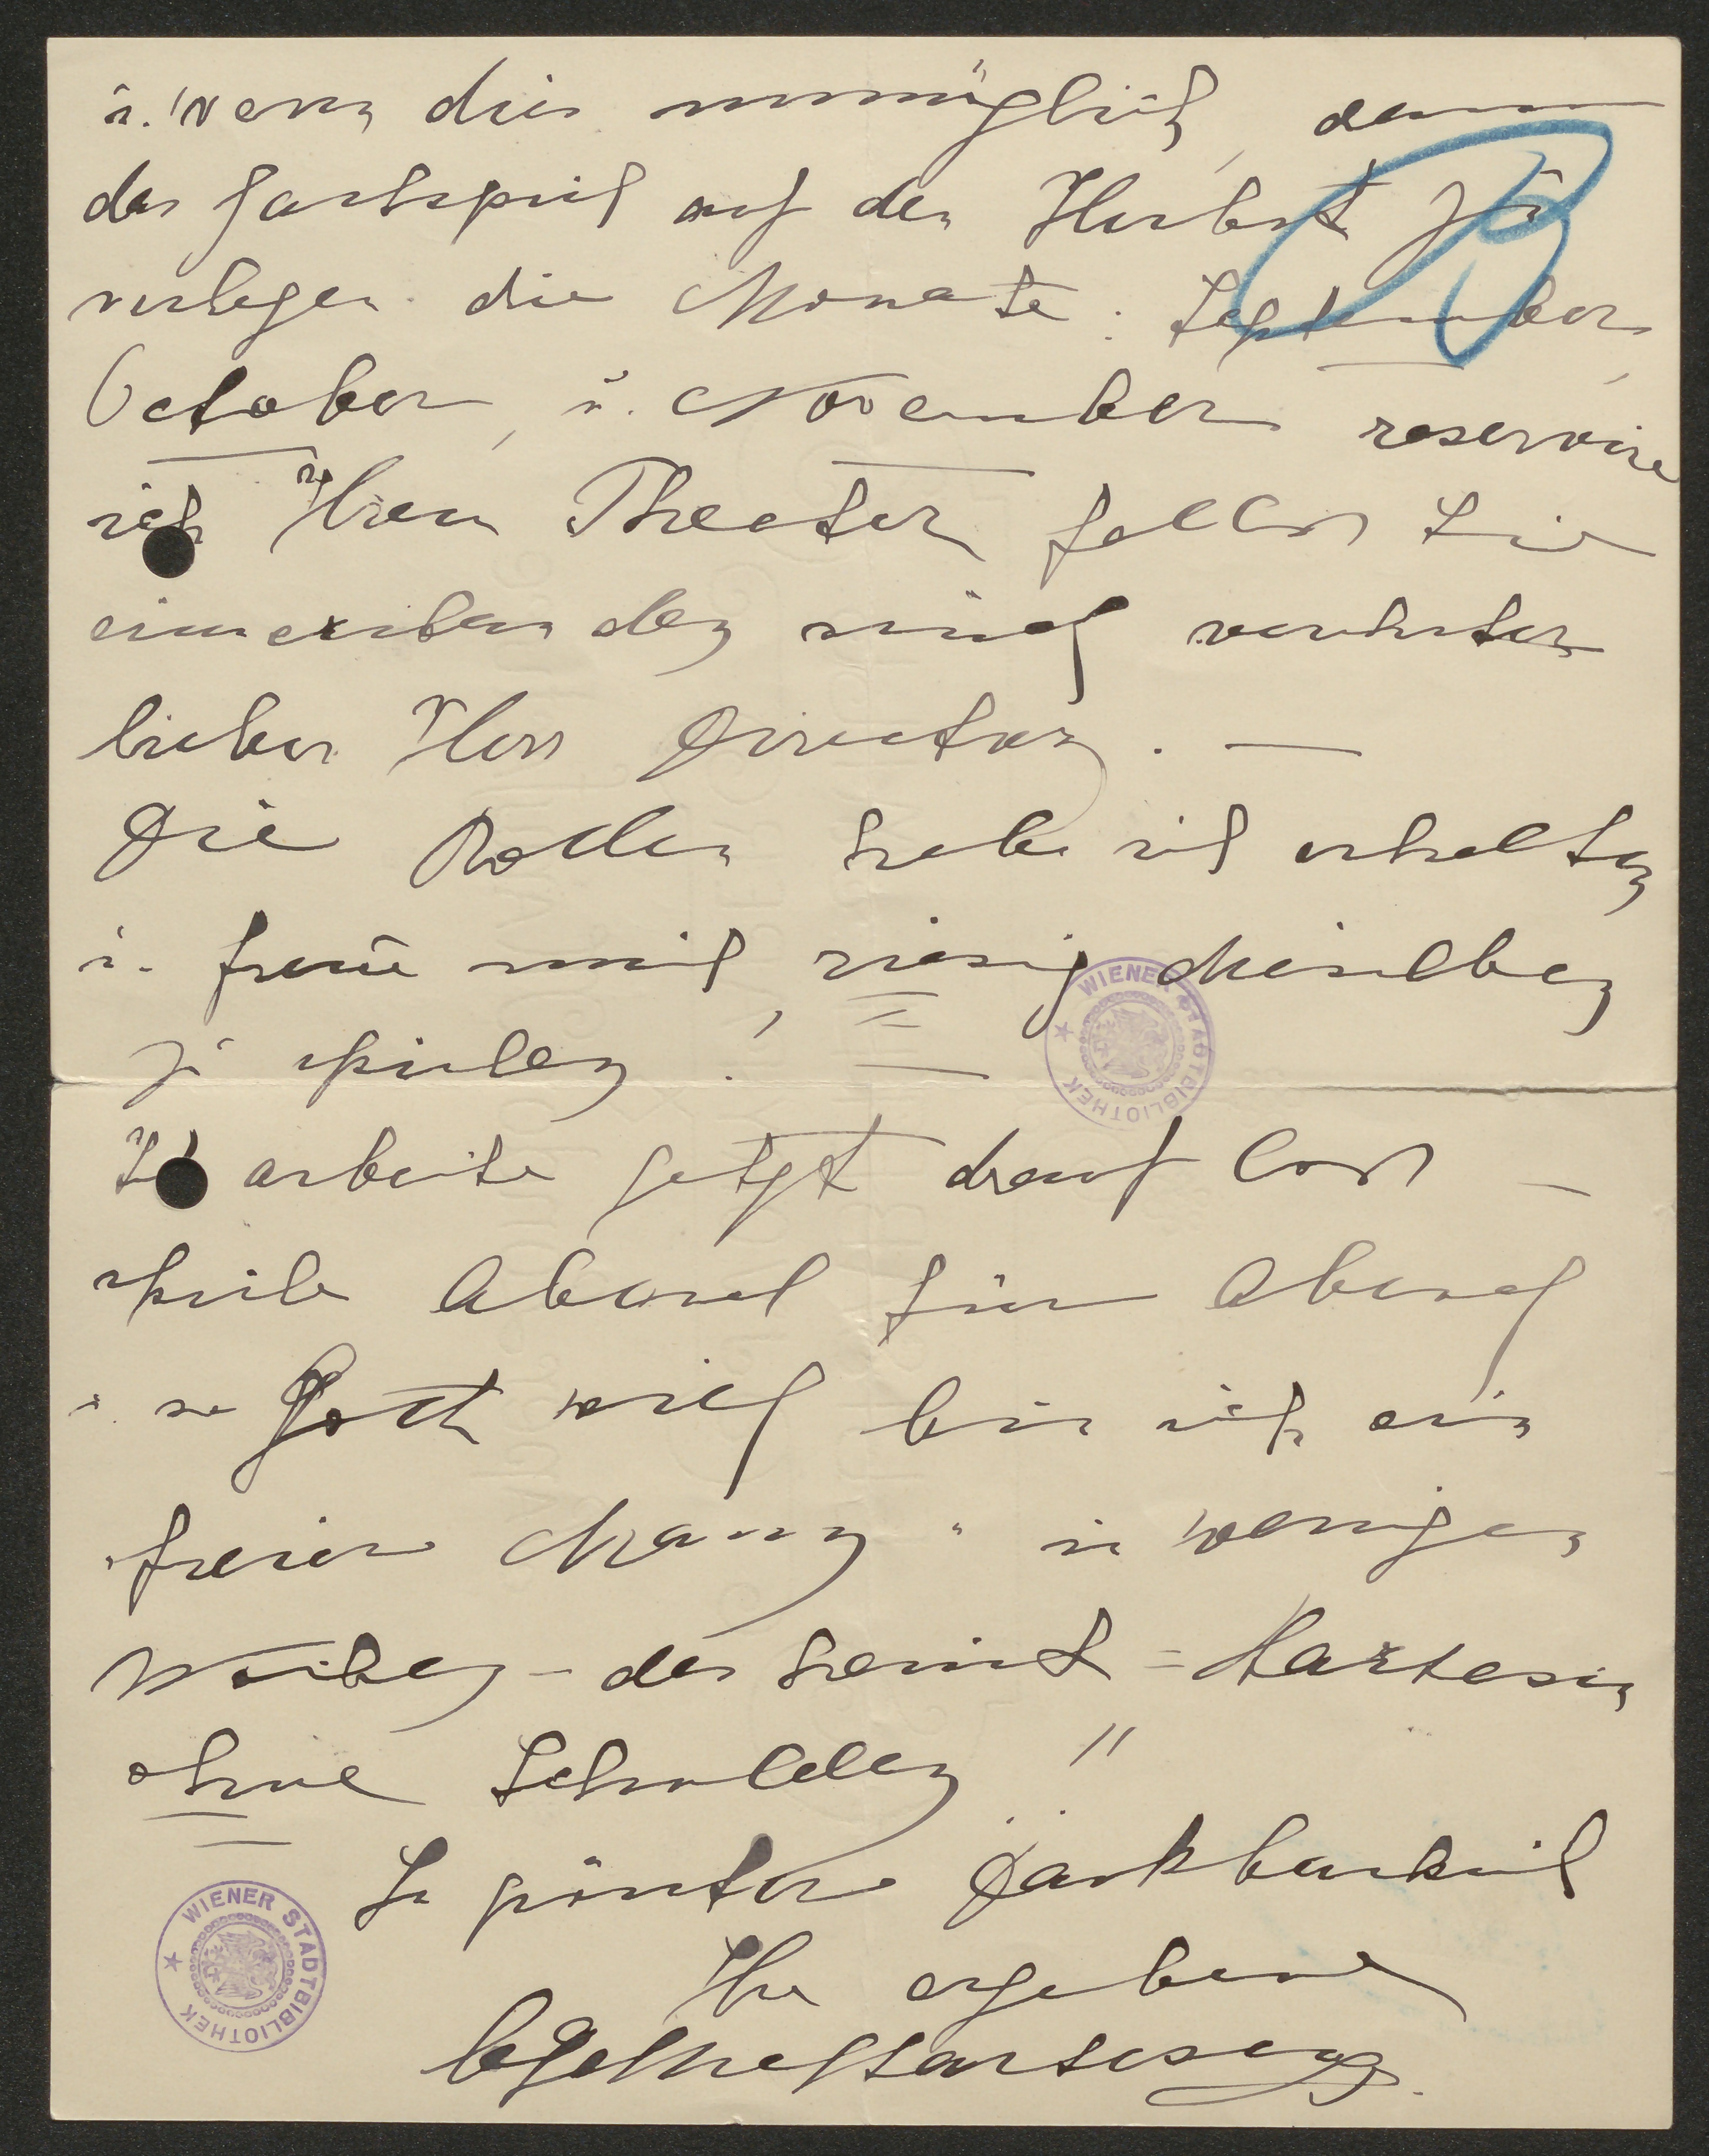 u. wenn dies unmöglich, dann
das Gastspiel auf den Herbst zu
verlegen. die Monate: September,
October, u. November reservire
ich Ihrem Theater falls Sie
einverstanden sind verehrter
lieber Herr Director. —
Die Rollen habe ich erhalten
u. freue mich, riesig dieselben
zu spielen! —
Ich arbeite jetzt drauf los —
spiele Abend für Abend
u. so Gott will bin ich ein
"freier Mann" in wenigen
Wochen – das heisst =
ohne Schulden"
In grösster Dankbarkeit
Ihr ergebener
WIENER STADTBIBLIOTHEK
WIENER STADTBIBLIOTHEK